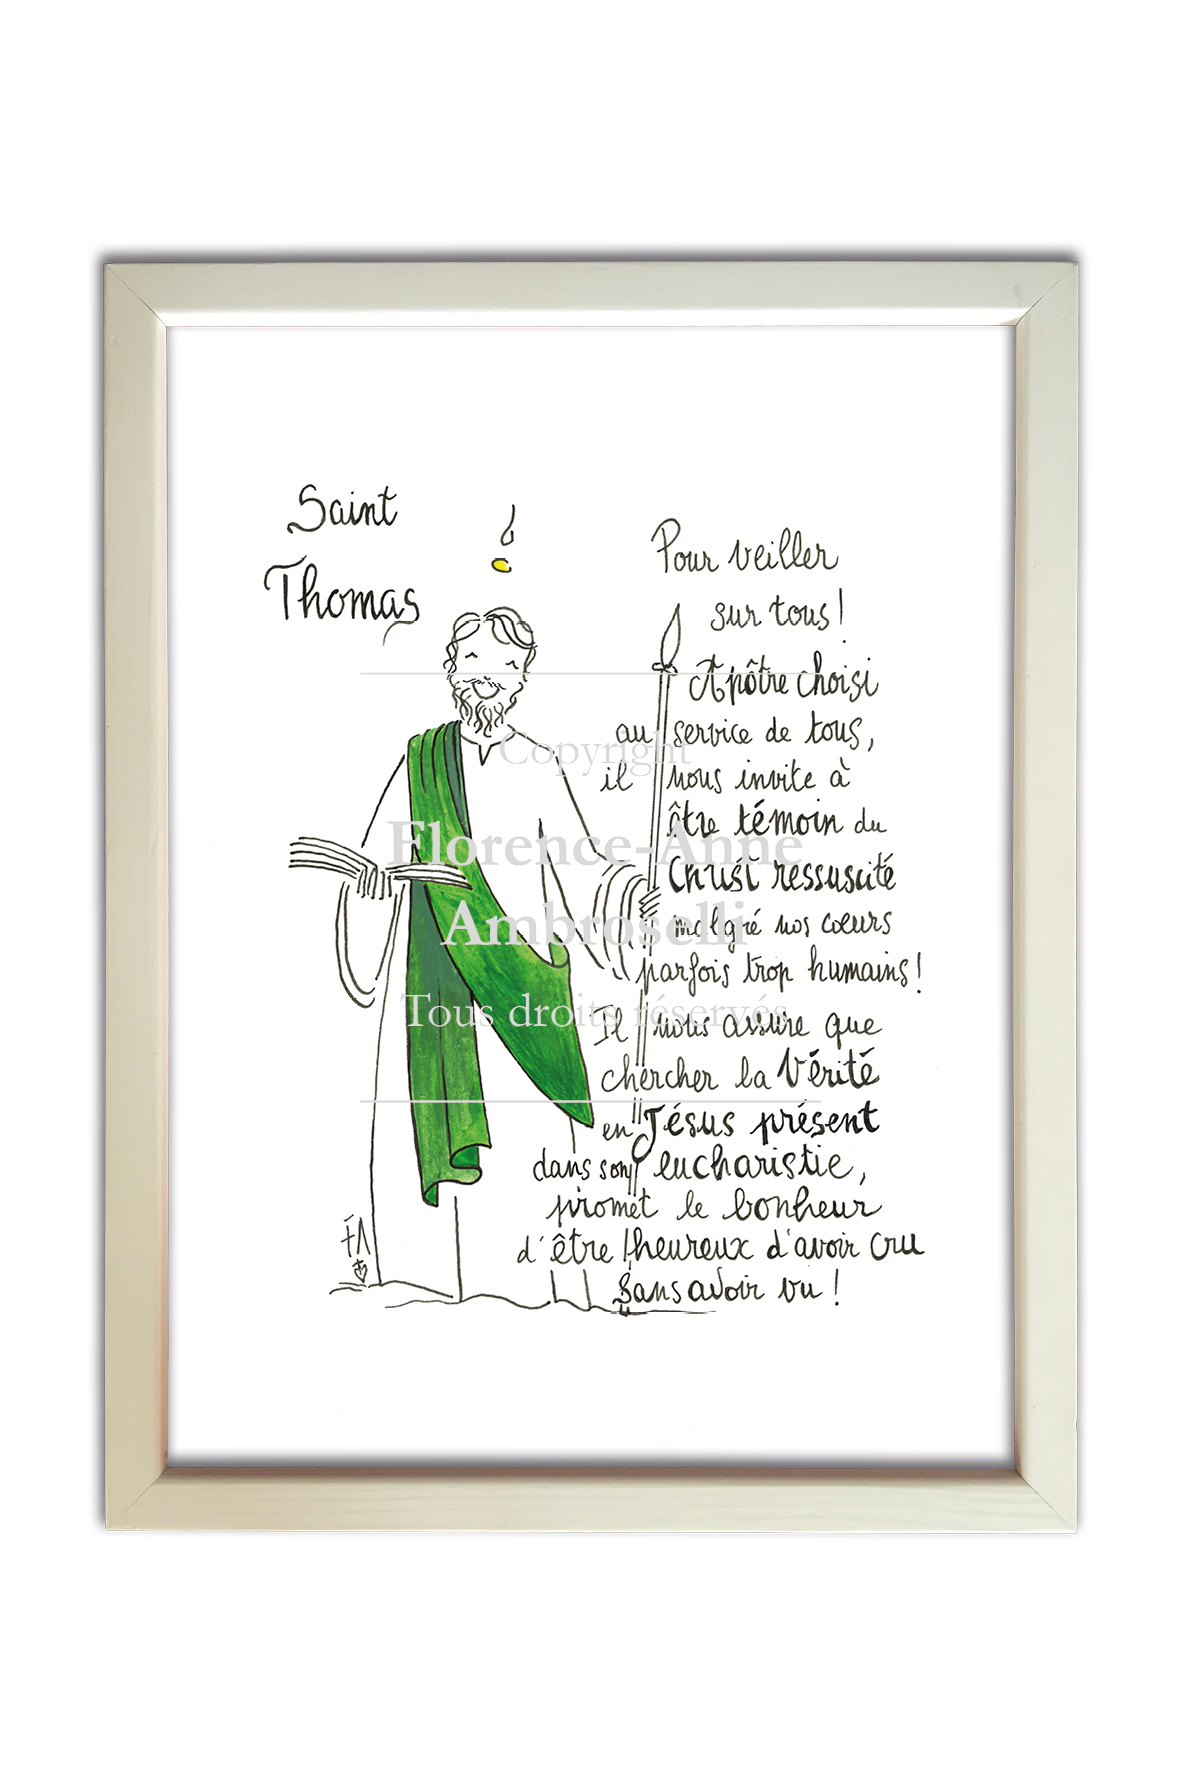 Saint
Thomas
Pour veiller
sur tous!
Apôtre choisi
au service de tous,
il nous invite à
être témoin du
Christ ressuscité
malgré nos cœurs
parfois trop humains!
Il nous assure que
chercher la Vérité
en Jésus présent
dans son eucharistie,
promet le bonheur
d'être heureux d'avoir cru
sans avoir vu!
FA
Copyright
Florence-Anne
Ambroselli
Tous droits réservés